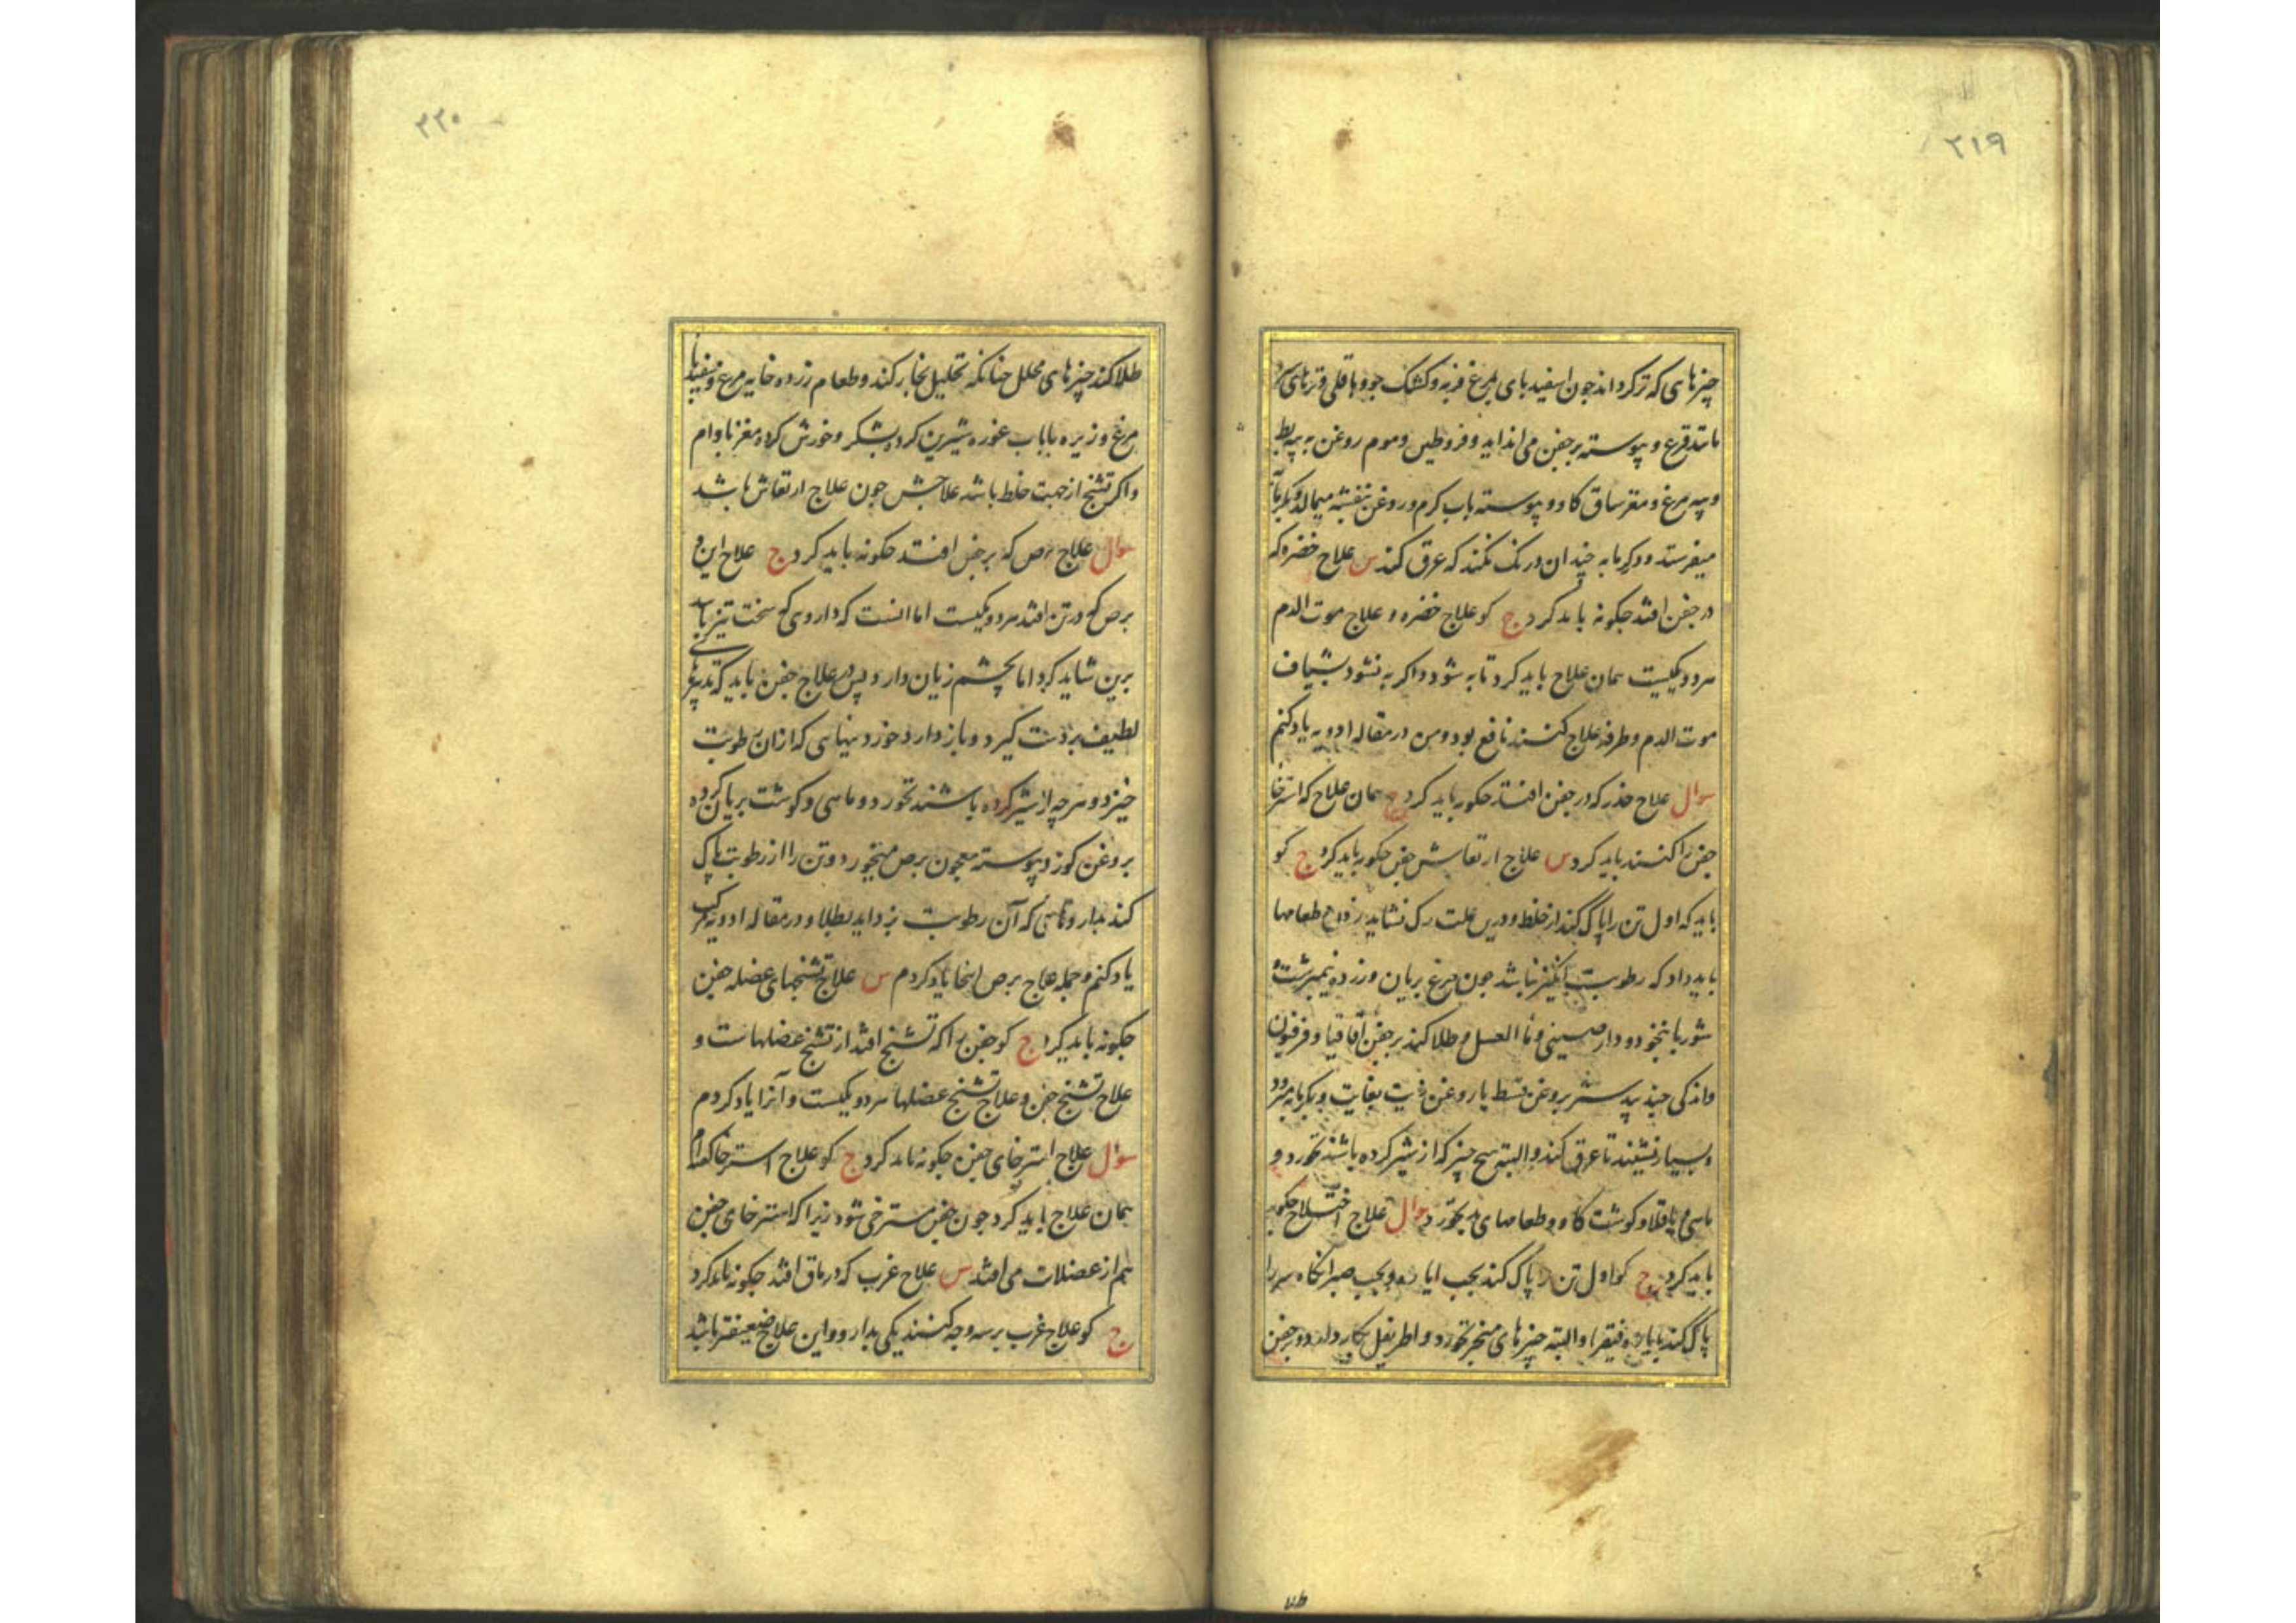 ٢١٩
چیزهای که تر کرداند چون اسفیدبای بمرغ فربه و کشک جو و باقلی و تریهای
مانند قرع و پیوسته بر جفن می انداید و قروطیس و موم روغن به پیه بط
و پیه مرغ و مغز ساق کاو و پیوسته باب کرم و روغن بنفشه میمالد و بکرمابه
میفرستد و در کرمابه چندان درنک نکند که عرق کند س علاج خضره که
در جفن افتد جکونه باید کرد ج کو علاج خضره و علاج موت الدم
هر دو یکیست همان علاج باید کرد تا به شود و اکر به نشود بشیاف
موت الدم و طرفه علاج کنند نافع بود و من در مقاله ادویه یاد کنم
سوال علاج خدر که در جفن افتد جکونه باید کرد ج همان علاج که استرخا
جفن را کنند باید کرد س علاج ارتعاش جفن جکونه باید کرد ج کو
باید که اول تن را پاک کند از خلط و درین علت رک نشاید زدن طعامها
باید داد که رطوبت انکیز نباشد جون مرغ بریان و زرده نیمبرشت و
شوربا بنخود و دارصینی و ما العسل و طلا کند بر جفن اقاقیا و فرفیون
و اندکی جندبیدستر بروغن قسط یا روغن زیت بغایت و بکرمابه برود
و بسیار نشیند تا عرق کند و البته هیج جیز که از شیر کرده باشند نخورد و
ماهی و باقلا و کوشت کاو و طعامهای بد نخورد سوال علاج اختلاج جکونه
باید کرد ج کو اول تن را پاک کند بحب ایاره و بحب صبر انکاه سر را
پاک کند بایاره فیقرا و البته چیزهای مبخر نخورد و اطریفل بکار دارد و بر جفن
٢٢٠
طلا کند چیزهای محلل جنانکه تحلیل بخار کند و طعام زرده خایه مرغ و سفیدبا
مرغ و زیره با باب غوره شیرین کرده بشکر و خورش کرده مغز باوام
و اکر تشنج از جهت خلط باشد علاجش جون علاج ارتعاش باشد
سوال علاج برص که بر جفن افتد جکونه باید کرد ج علاج این و
برص که در تن افتد هر دو یکیست اما انست که داروی که سخت تیز باشد
برین شاید کرد اما بچشم زیان دارد پس در علاج جفن باید که تدبیرهای
لطیف بر دست کیرد و باز دارد خوردنیهایی که ازان رطوبت
خیزد و هرچه از شیر کرده باشند نخورد و ماهی و کوشت بریان کرده
بروغن کوز و پیوسته معجون برص میخورد و تن را از رطوبت پاک
کند بداروهایی که آن رطوبت بزداید بطلا و در مقاله ادویه مرکب
یاد کنم و جمله علاج برص اینجا یاد کردم س علاج تشنجهای عضله جفن
جکونه باید کرد ج کو جفن را که تشنج افتد از تشنج عضلهاست و
علاج تشنج جفن و علاج تشنج عضلها هر دو یکیست و آنرا یاد کردم
سوال علاج استرخای جفن جکونه باید کرد ج کو علاج استرخا کدام
همان علاج باید کرد جون جفن مسترخی شود زیرا که استرخای جفن
هم از عضلات می افتد س علاج غرب که در ماق افتد جکونه باید کرد
ج کو علاج غرب بر سه وجه کنند یکی بدارو و این علاج ضعیفتر باشد